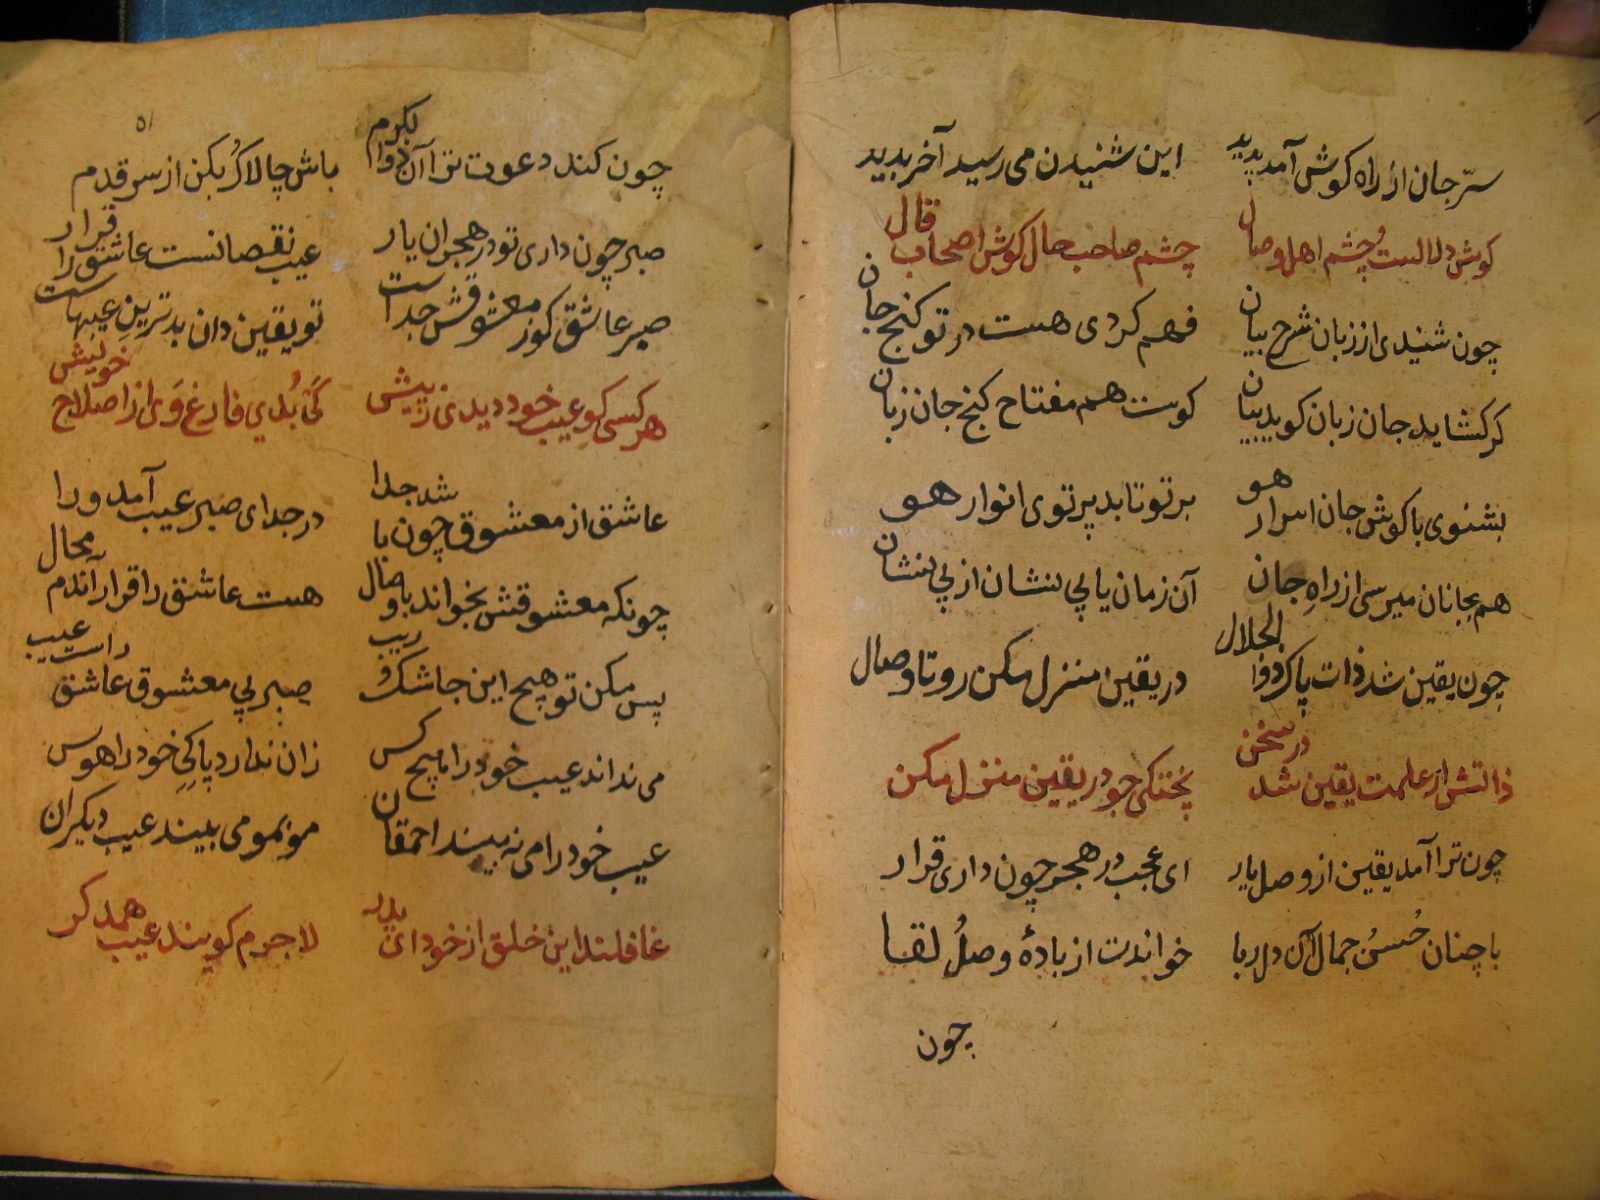 سرّ جان از راه کوش آمد پدید این شنیدن می رسید آخر بدید
کوش دلالست و چشم اهل وصال چشم صاحب حال کوش اصحاب قال
چون شنیدی از زبان شرح بیان فهم کردی هست در تو کنج جان
کر کشاید جان زبان کوید بیان کوست هم مفتاح کنج جان زبان
بشنوی با کوش جان اسرار هو بر تو تابد پرتوی انوار هو
هم بجانان میرسی از راهِ جان آن زمان یابی نشان از بی نشان
چون یقین شد ذات پاک ذوالجلال در یقین منزل مکن رو تا وصال
ذاتش از علمت یقین شد در سخن پختکی جو در یقین منزل مکن
چون ترا آمد یقین از وصل یار ای عجب در هجر چون داری قرار
با چنان حُسنُ جمال آن دل ربا خواندت از بادهٔ وصلُ لقا
چون
۵۱
چون کند دعوت ترا آن ذوالکرم باش چالاکُ بکن از سر قدم
صبر چون داری تو در هجران یار عیب نقصانست عاشق را قرار
صبر عاشق کوز معشوقش جداست تو یقین دان بدترینِ عیبهاست
هر کسی کو عیب خود دیدی ز پیش کَی بُدی فارغ وَی از اصلاح خویش
عاشق از معشوق چون با شد جدا در جدای صبر عیب آمد ورا
چونکه معشوقش بخواند با وصال هست عاشق را قرار آندم محال
پس مکن تو هیچ این جا شکُ ریب صبر بی معشوق عاشق راست عیب
می نداند عیب خود را هیچ کس زان ندارد پاکیِ خود را هوس
عیب خود را می نه بیند احمقان مو بمو می بیند عیب دیکران
غافلند این خلق از خود ای پدر لاجرم کویند عیب همدکر